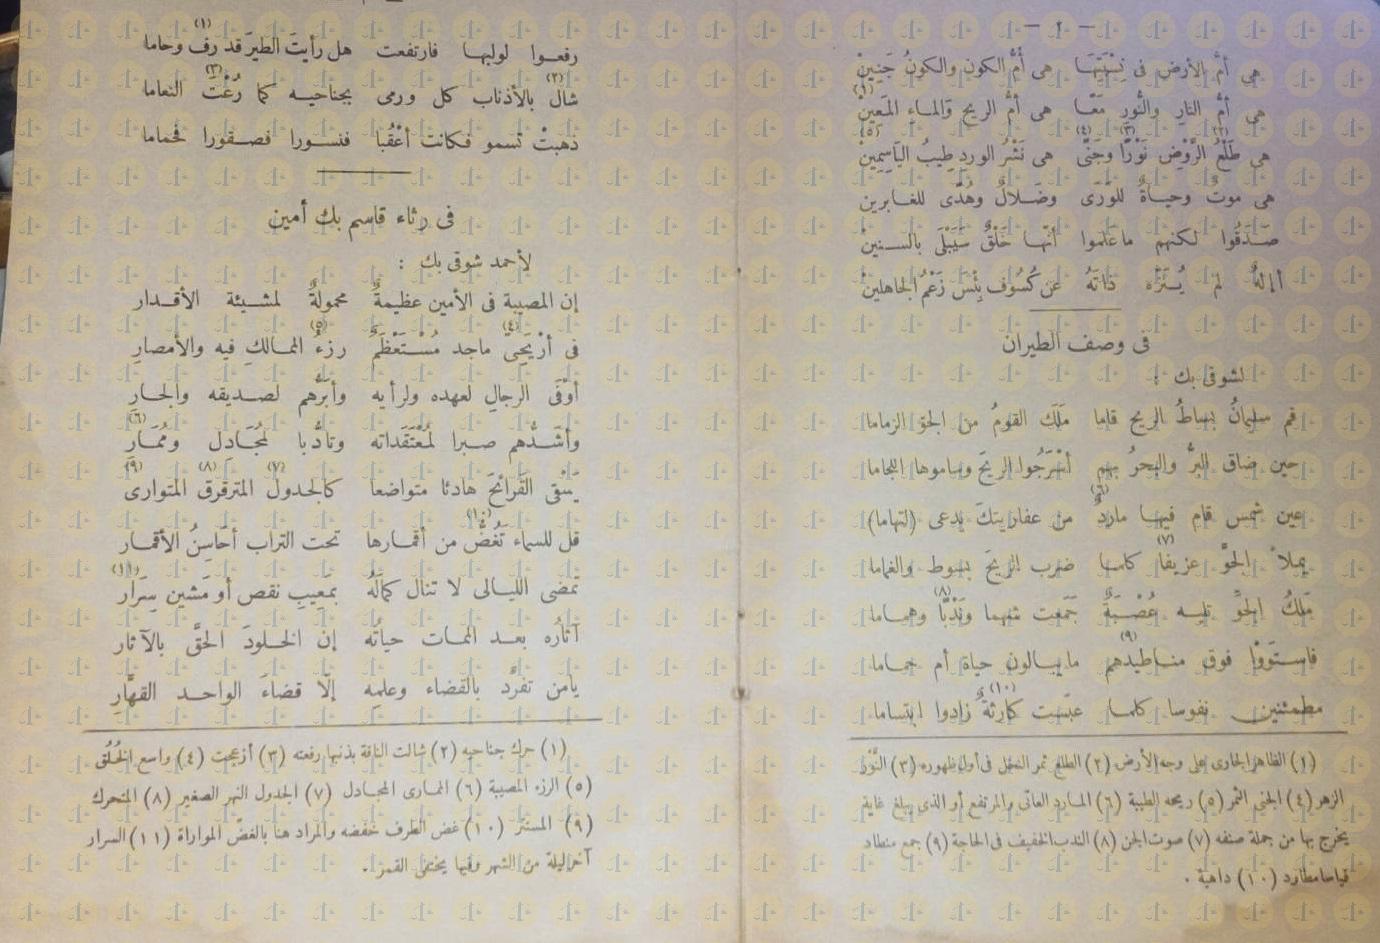 — ٢ —
هى أمُّ الأرض فى نِسْبَتِهَا هى أُمُّ الكونِ والكونُ جَنِينْ
هى أمُّ النارِ والنُّورِ مَعًا هى أمُّ الريح والماءِ المَعِينْ (١)
هى طَلْعُ (٢) الرَّوْضِ نَوْرًا (٣) وجَنًى (٤) هى نَشْرُ الوردِ طِيبُ (٥) اليَاسِمِينْ
هى موتٌ وحياةٌ للوَرَى وضَلالٌ وهُدًى للغابرين
صَدَقُوا لكنهم ما عَلموا أنها خَلْقٌ سَيَبْلَى بالسنينْ
أإلهٌ لم يُنَزِّه ذاتَهُ عن كُسُوف بِئْسَ زَعْمُ الجاهلينْ
فى وصف الطيران
لشوقى بك :
قم سليمانُ بساطُ الريح قاما مَلَكَ القومُ من الجوّ الزماما
حين ضاق البرُّ والبحرُ بهم أَسْرَجُوا الريحَ وساموها اللجاما
عين شمس قام فيها ماردٌ (٦) من عفاريتكَ يدعى (لتهاما)
يملأُ الجوَّ عزيفًا (٧) كلما ضرب الريحَ بسوط والغماما
مَلِكُ الجوّ تليه عُصْبَةٌ جَمَعت شهما ونَدْبًا (٨) وهماما
فاستَوَوْا فوق مناطيدهم (٩) ما يبالون حياة أم حماما
مطمئنين نفوسا كلما عبّست كَارِثَةٌ (١٠) زادوا ابتساما
(١) الظاهر الجارى على وجه الأرض (٢) الطلع ثمر النخل فى أول ظهوره (٣) النَّوْر
الزهر (٤) الجنى الثمر (٥) ريحه الطيبة (٦) المارد العاتى والمرتفع أو الذى يبلغ غاية
يخرج بها من جملة صنفه (٧) صوت الجن (٨) الندب الخفيف فى الحاجة (٩) جمع منطاد
قياسا مطاود (١٠) داهية .
رفعوا لولبها فارتفعت هل رأيتَ الطيرَ قد رف (١) وحاما
شال (٢) بالأذناب كل ورمى بجناحيه كما رُعْتَ (٣) النعاما
ذهبتْ تسمو فكانت أعْقُبا فنسورا فصقورا فحماما
فى رثاء قاسم بك أمين
لأحمد شوقى بك :
إن المصيبة فى الأمين عظيمةٌ محمولةٌ لمشيئة الأقدار
فى أرْيَحِىّ (٤) ماجد مُسْتَعْظَمٍ رزءُ (٥) الممالكِ فيه والأمصارِ
أوْفَى الرجالِ لعهده ولرأيه وأبَرُّهم لصديقه والجارِ
وأشَدُّهم صبرا لمُعْتَقَداته وتأدُّبا لمُجَادِل ومُمَارِ (٦)
يَسْقى القَرائحَ هادئا متواضعا كالجدول (٧) المترقرق (٨) المتوارى (٩)
قل للسماء تَغُضُّ (١٠) من أقمارها تحت التراب أحَاسِنُ الأقمار
تمضى الليالى لا تنال كمالَهُ بمَعِيبِ نقص أو مَشين سِرَار (١١)
آثارُه بعد الممات حياتُه إن الخلودَ الحَقَّ بالآثار
يامن تفرَّد بالقضاء وعلمِه إلّا قضاءَ الواحد القهَّارِ
(١) حرك جناحيه (٢) شالت الناقة بذنبها رفعته (٣) أزعجت (٤) واسع الخُلُق
(٥) الرزء المصيبة (٦) الممارى المجادل (٧) الجدول النهر الصغير (٨) المتحرك
(٩) المستتر (١٠) غض الطرف خفضه والمراد هنا بالغض المواراة (١١) السرار
آخر ليلة من الشهر وفيها يختفى القمر .